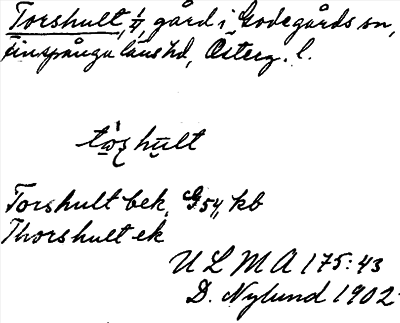 Torshult, 1/1, gård i Godegårds sn,
Finspånga läns hd, Österg. l.
Torshult bek. G54, kb
Thorshult ek
ULMA 175:43
D. Nylund 1902